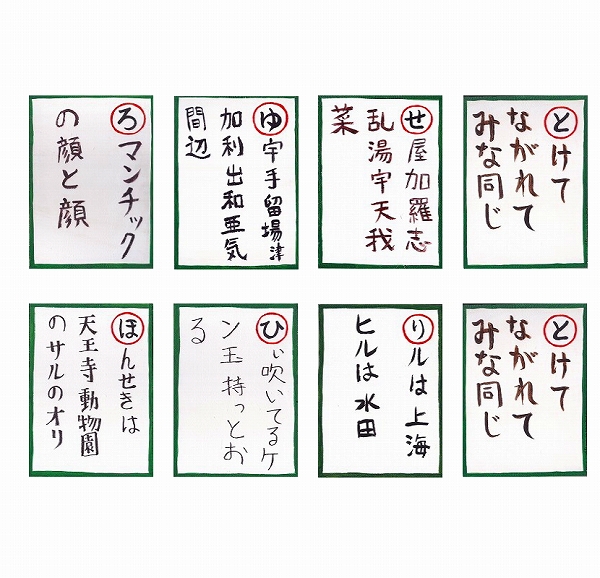 とけて
ながれて
みな同じ
せ屋加羅志
乱湯宇天我
菜
ゆ宇手留場津
加利出和亜気
間辺
ろマンチック
の顔と顔
とけて
ながれて
みな同じ
りルは上海
ヒルは水田
ひぃ吹いてるケ
ン玉持っとお
る
ほんせきは
天王寺動物園
のサルのオリ